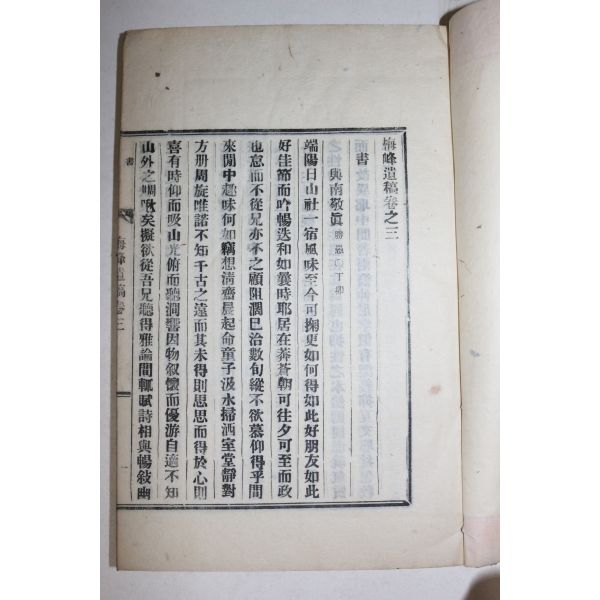 梅峰遺稿卷之三
書
與南敬眞 丁卯
端陽日山社一宿風味至今可掬更如何得如此好朋友如此
好佳節而吟暢迭和如曩時耶居在莽蒼朝可往夕可至而政
也怠而不從兄亦不之顧阻濶已洽數旬縱不欲慕仰得乎間
來閒中趣味何如竊想淸齋晨起命童子汲水掃洒室堂靜對
方册周旋唯諾不知千古之遠而其未得則思思而得於心則
喜有時仰而吸山光俯而聽澗響因物叙懷而優游自適不知
山外之啁啾矣擬欲從吾兄聽得雅論間輒賦詩相與暢敍幽
書
梅峰遺稿卷三
一